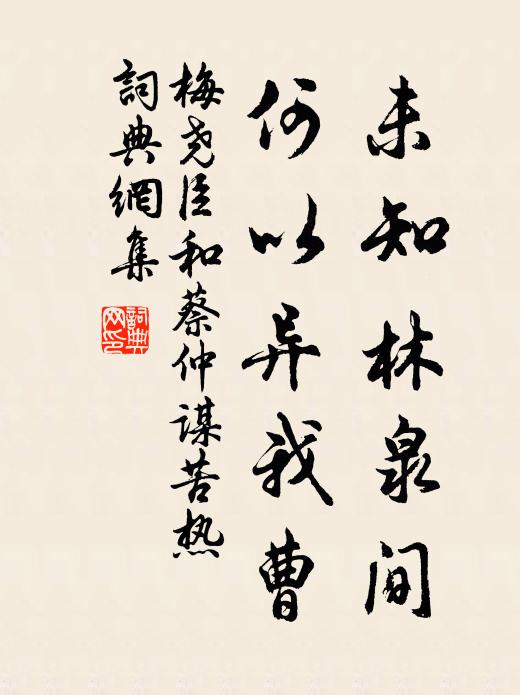 未知林泉间
何以异我曹
梅尧臣和蔡仲谋苦热
詞典網集
詞典网印